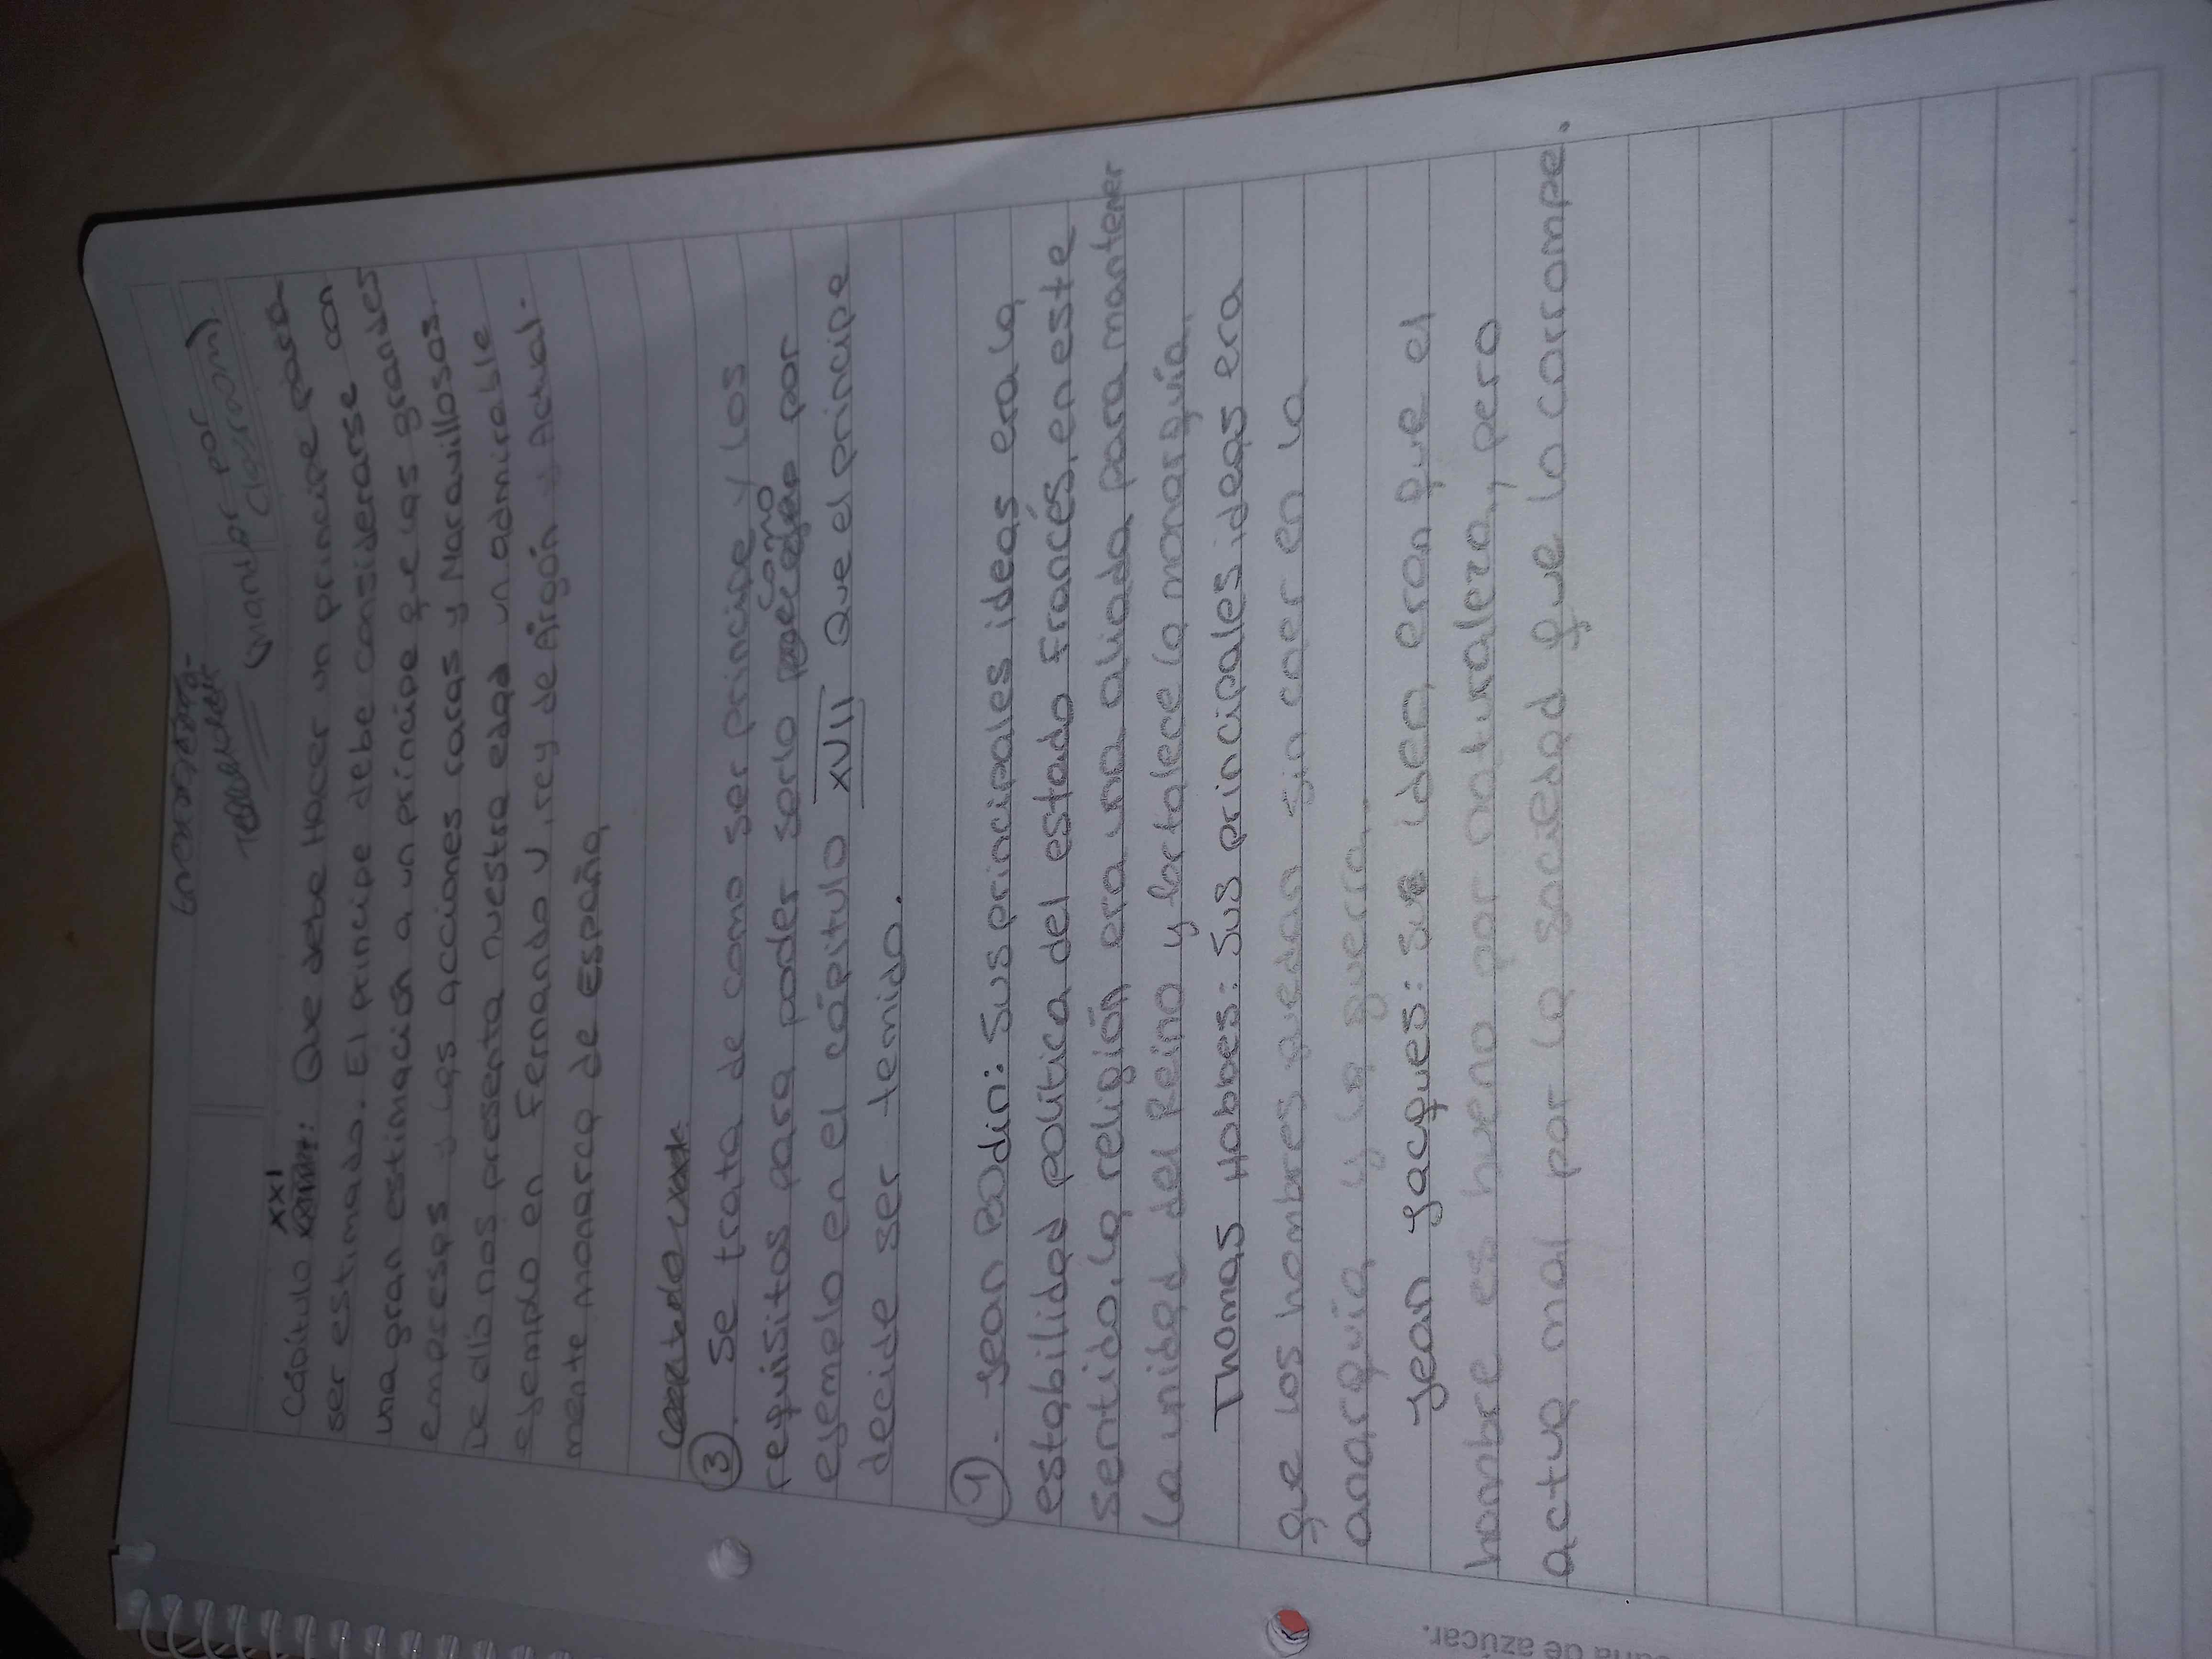 (mandar por
classroom)
Cápitulo XXI: Que debe Hacer un principe para
ser estimado. El principe debe considerarse con
una gran estimación a un príncipe que las grandes
empresas y las acciones raras y Maravillosas.
De ello nos presenta nuestra edad un admirable
ejemplo en Fernando V, rey de Árgón y Actual-
mente monarca de España
3. Se trata de como ser principe y los
requisitos para poder serlo como por
ejemplo en el cápitulo XVII Que el principe
decide ser temido.
1. Jean BOdin: Sus principales ideas era la
estabilidad política del estado Francés, en este
sentido, la religión era una aliada para mantener
La unidad del Reino y fortalece la monarquía
Thomas Hobbes: Sus principales ideas era
que los hombres quedan sin caer en la
anarquía y la guerra.
Jean Jacques: Su idea eran que el
hombre es bueno por naturaleza, pero
actua mal por la sociedad que lo corrompe.
de azúcar.